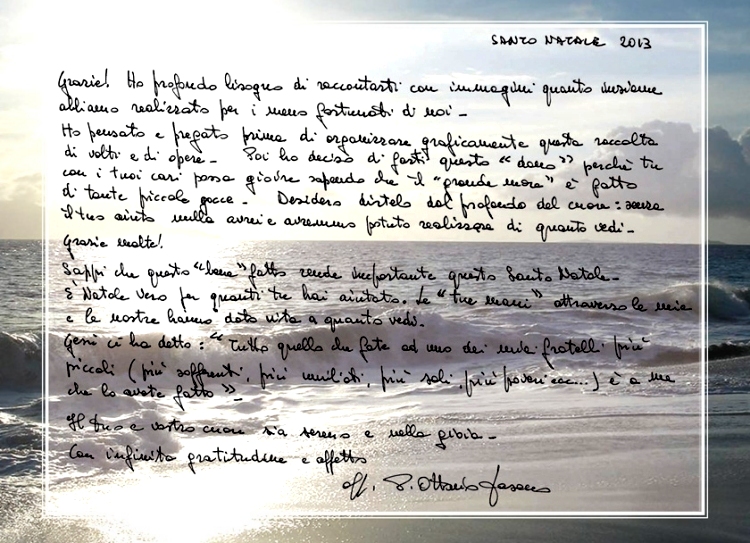 SANTO NATALE 2013
Grazie! Ho profondo bisogno di raccontarti con immagini quanto insieme
abbiamo realizzato per i meno fortunati di noi-
Ho pensato e pregato prima di organizzare graficamente questa raccolta
di volti e di opere- Poi ho deciso di farti questo "dono" perché tu
con i tuoi cari possa gioire sapendo che il "grande mare" è fatto
di tante piccole gocce- Desidero dirtelo dal profondo del cuore: senza
il tuo aiuto nulla avrei e avremmo potuto realizzare di quanto vedi-
Grazie molte!
Sappi che questo "bene" fatto rende importante questo Santo Natale-
È Natale vero per quanti tu hai aiutato. Le "tue mani" attraverso le mie
e le nostre hanno dato vita a quanto vedi.
Gesù ci ha detto: "Tutto quello che fate ad uno dei miei fratelli più
piccoli (più sofferenti, più umiliati, più soli, più poveri ecc...) è a me
che lo avete fatto"-
Il tuo e vostro cuore sia sereno e nella gioia-
Con infinita gratitudine e affetto
aff. P. Ottavio Fasano